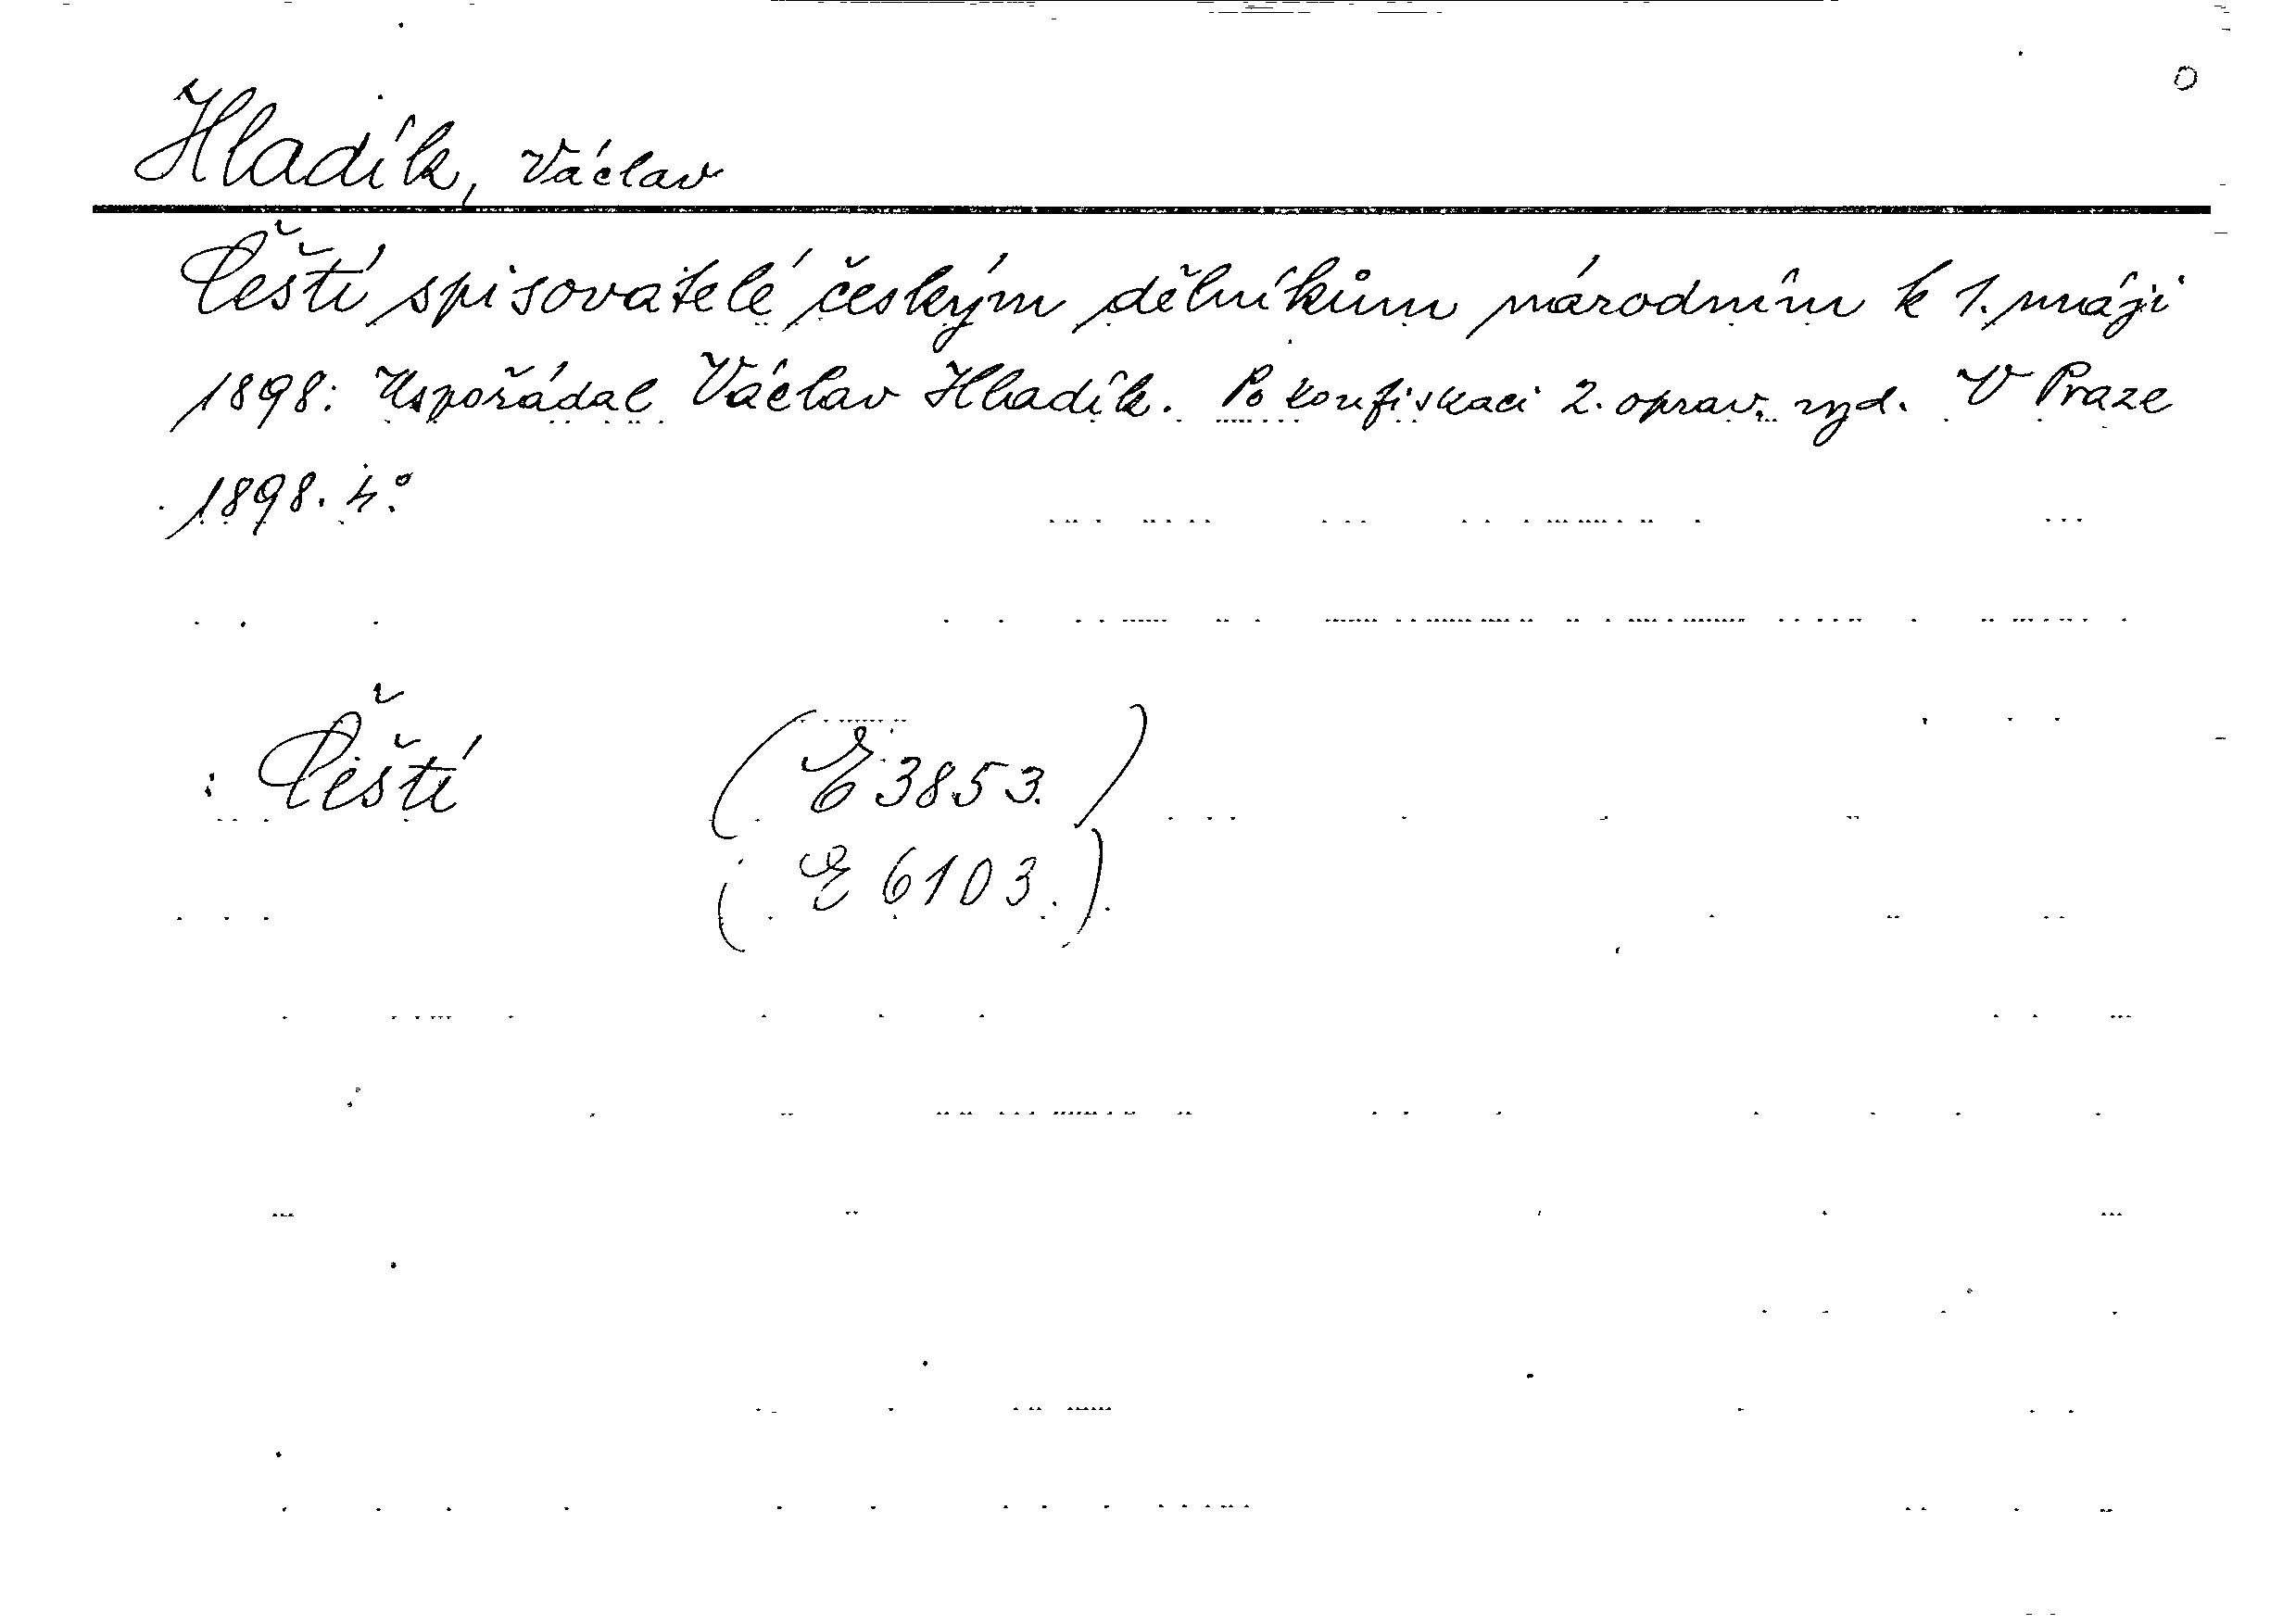 Hladík, Václav
Čeští spisovatelé českým dělníkům národním k 1. máji
1898. Uspořádal Václav Hladík. Po konfiskaci 2. oprav. vyd. V Praze
1898. 4°.
Čeští (E 3853.)
(E 6103.)